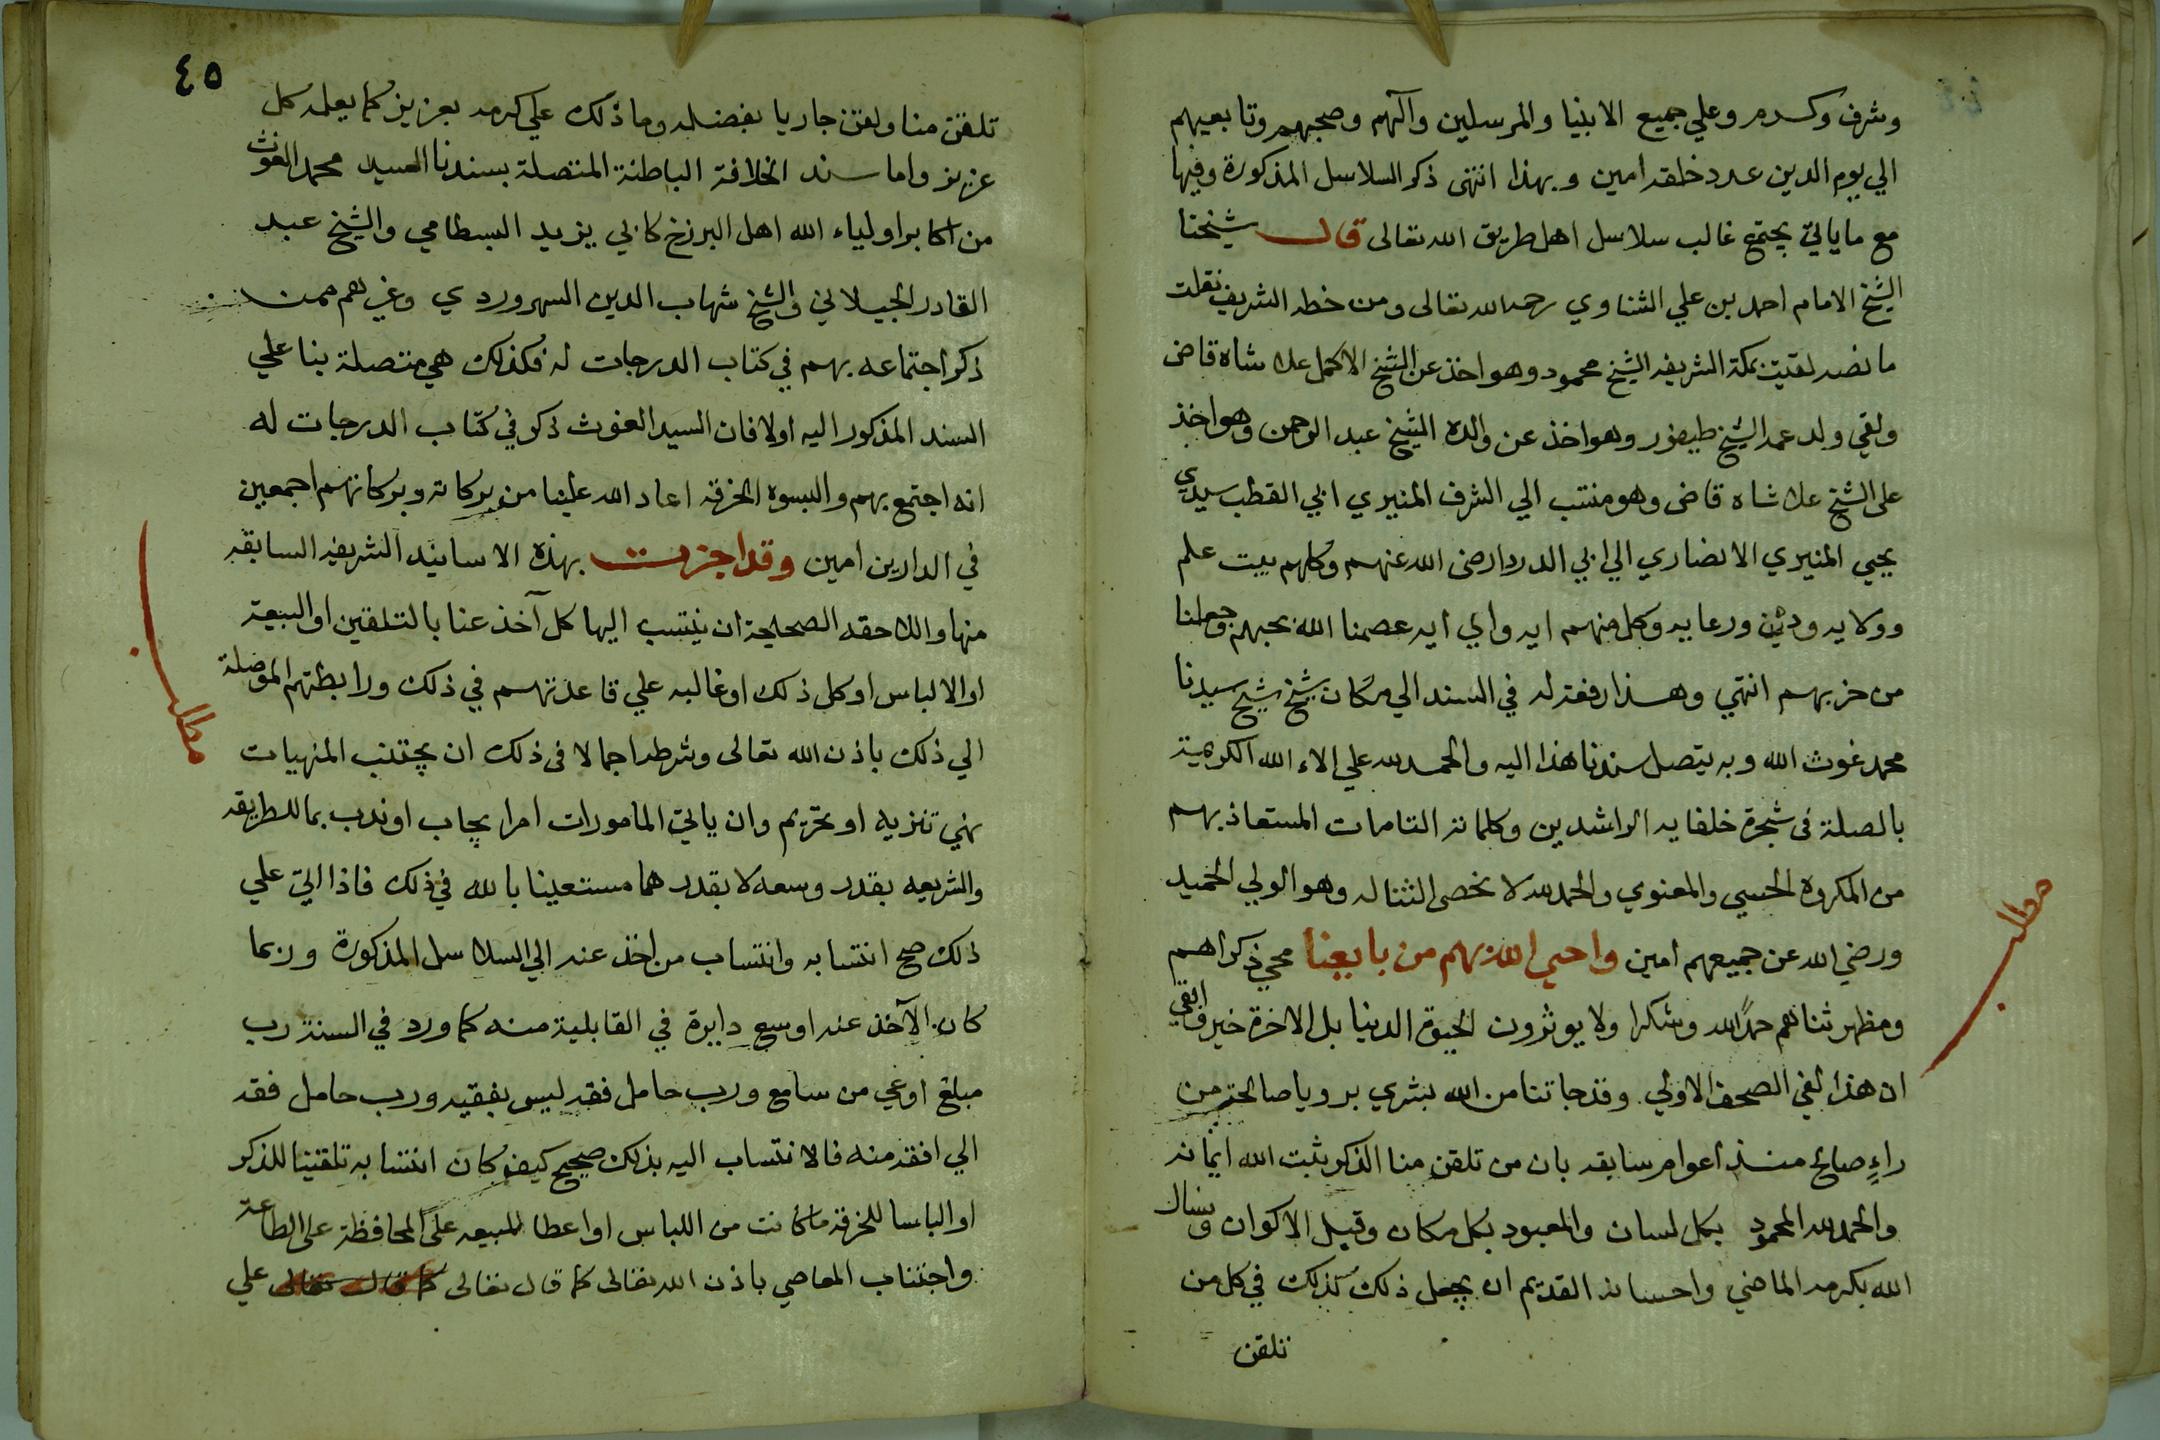 وشرف وكرم وعلي جميع الانبيا والمرسلين وآلهم وصحبهم وتابعيهم
الي يوم الدين عدد خلقه امين وبهذا انتهى ذكر السلاسل المذكورة وفيها
مع ما ياتي يجتمع غالب سلاسل اهل طريق الله تعالى قال شيخنا
الشيخ الامام احمد بن علي الشناوي رحمه الله تعالى ومن خطه الشريف نقلت
ما نصه لقيت بمكة الشريفه الشيخ محمود وهو اخذ عن الشيخ الاكمل علا شاه قاضى
ولقي ولد عمه الشيخ طيفور وهو اخذ عن والده الشيخ عبد الرحمن وهو اخذ
على الشيخ علا شاه قاضى وهو منتسب الي الشرف المنيري ابي القطب سيدي
يحيي المنيري الانصاري الي ابي الدردا رضى الله عنهم وكلهم بيت علم
وولايه ودين ورعايه وكل منهم ايه واي ايه عصمنا الله بحبهم وجعلنا
من حزبهم انتهي وهذا رفعة له في السند الي مكان شيخ شيخ سيدنا
محمد غوث الله وبه يتصل سندنا هذا اليه والحمد لله علي الاء الله الكرهية
بالصلة في شجرة خلفايه الراشدين وكلماته التامات المستعاذ بهم
من المكروه الحسي والمعنوي والحمد لله لا نحصى الثنا له وهو الولي الحميد
ورضي الله عن جميعهم امين واحيي الله بهم من بايعنا محيي ذكراهم
ومظهر ثناهم حمدًا لله وشكرا ولا يوثرون الحيوة الدنيا بل الاخرة خير وابقي
ان هذا لفي الصحف الاولي وقد جاتنا من الله بشري برويا صالحة من
راءٍ صالح منذ اعوام سابقه بان من تلقن منا الذكر يثبت الله ايمانه
والحمد لله المحمود بكل لسان والمعبود بكل مكان وقبل الاكوان ونسال
الله بكرمه الماضي واحسانه القديم ان يجعل ذلك كذلك في كل من
تلقن
مطلب
٤٥
تلقن منا ولقن جاريا بفضله وما ذلك علي كرمه بعزيز كما يعلمه كل
عزيز واما سند الخلافة الباطنة المتصلة بسندنا السيد محمد الغوث
من اكابر اولياء الله اهل البرزخ كابي يزيد البسطامي والشيخ عبد
القادر الجيلاني والشيخ شهاب الدين السهروردي وغيرهم ممن
ذكر اجتماعه بهم في كتاب الدرجات له فكذلك هي متصلة بنا علي
السند المذكور اليه اولا فان السيد الغوث ذكر في كتاب الدرجات له
انه اجتمع بهم والبسوه الخرقه اعاد الله علينا من بركاته وبركاتهم اجمعين
في الدارين امين وقد اجزت بهذه الاسانيد الشريفه السابقه
منها واللاحقه الصحيحة ان ينتسب اليها كل آخذ عنا بالتلقين او البيعة
او الالباس او كل ذلك او غالبه علي قاعدتهم في ذلك ورابطتهم الموصلة
الي ذلك باذن الله تعالى وشرطه اجمالا في ذلك ان يجتنب المنهيات
نهي تنزيه او تحريم وان ياتي المامورات امر ايجاب او ندب بما للطريقه
والشريعه بقدر وسعه لا بقدر هما مستعينا بالله في ذلك فاذا اتي علي
ذلك صح انتسابه وانتساب من اخذ عنه الي السلاسل المذكورة وربما
كان الآخذ عنه اوسع دايرة في القابلية منه كما ورد في السنة رب
مبلغ اوعي من سامع ورب حامل فقه ليس بفقيه ورب حامل فقه
الي افقه منه فالانتساب اليه بذلك صحيح كيف كان انتسابه تلقينا للذكر
او الباسا للخرقة ما كانت من اللباس او اعطا للبيعه علي المحافظة على الطاعة
واجتناب المعاصي باذن الله تعالى كما قال تعالى كما قال تعالى علي
مطلب